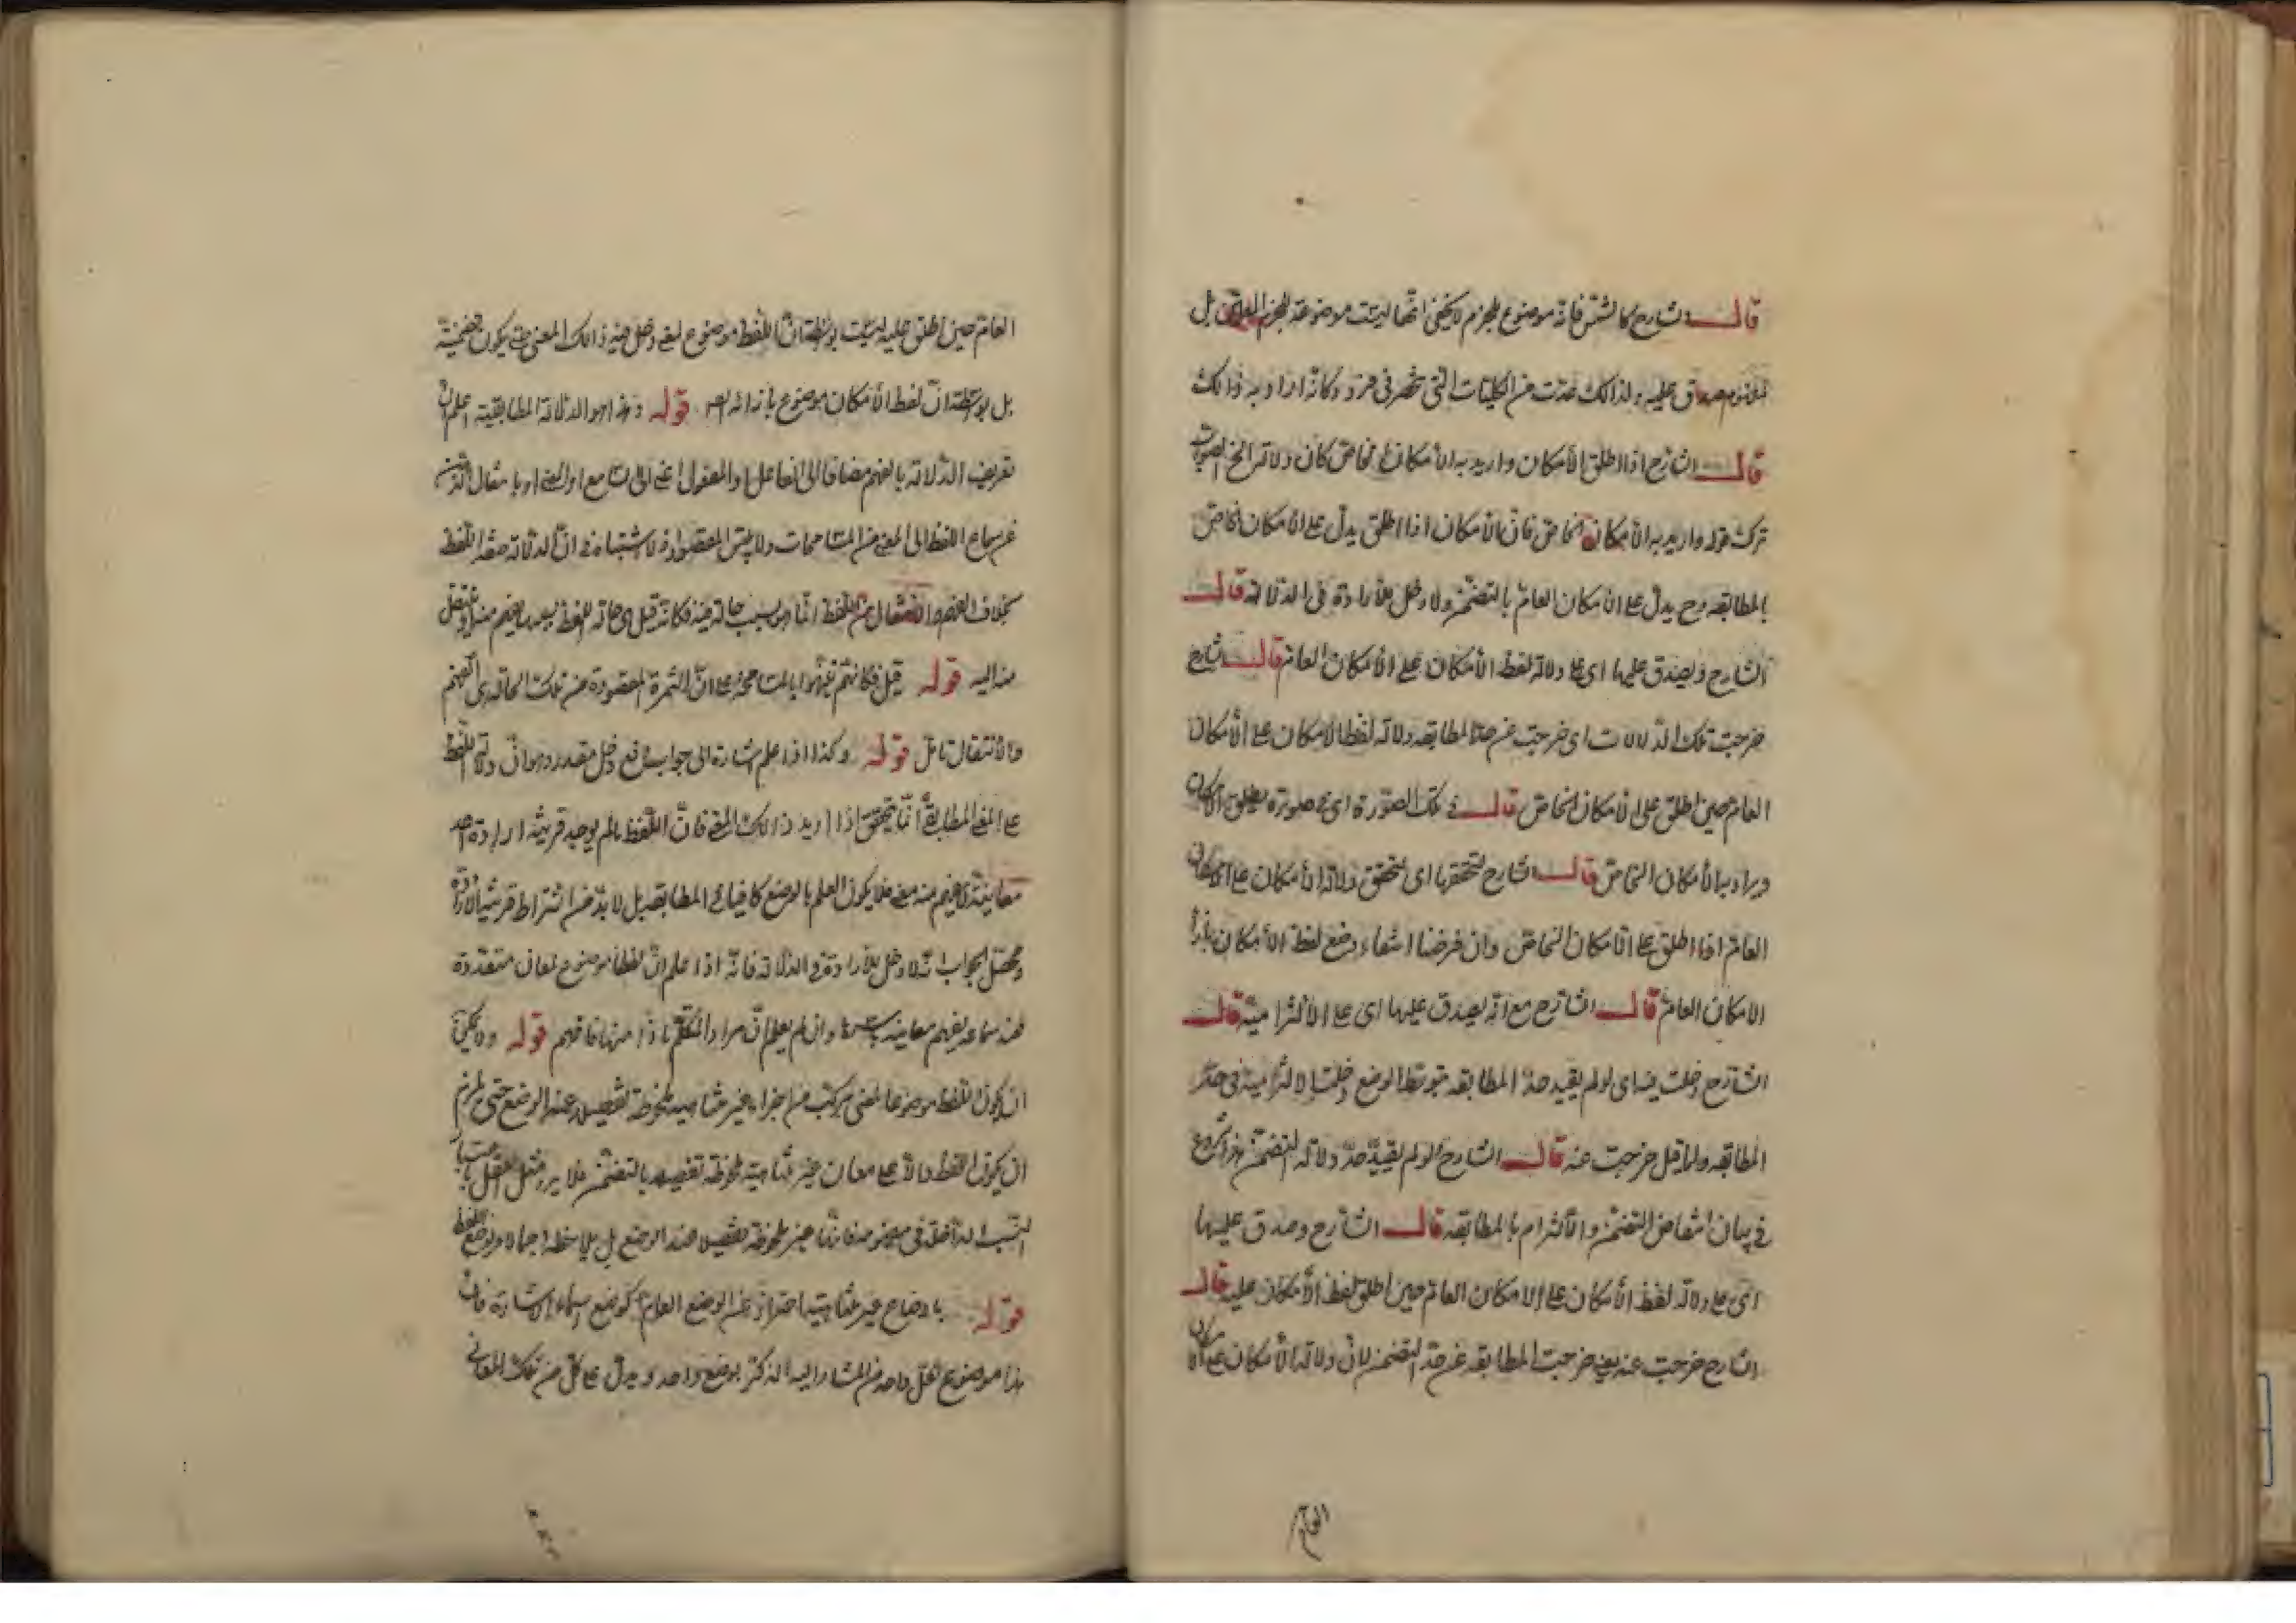 قال الشارح كالشمس فانه موضوع للجرم لا يخفى انها ليست موضوعة للجرم بل
لمفهوم صادق عليه ولذلك عدت من الكليات التي تنحصر في فرد وكانه اراد به ذالك
قال الشارح اذا اطلق الامكان واريد به الامكان الخاص كان دلالته الخ الصواب
ترك قوله واريد به الامكان الخاص فان الامكان اذا اطلق يدل على الامكان الخاص
بالمطابقه وح يدل على الامكان العام بالتضمن ولا دخل للارادة في الدلالة قال
الشارح ويصدق عليها اى على دلالة لفظ الامكان على الامكان العام قال الشارح
خرجت تلك الدلالات اى خرجت عن حد المطابقه دلالة لفظ الامكان على الامكان
العام حين اطلق على الامكان الخاص قال في تلك الصورة اى في صورة يطلق الامكان
ويراد به الامكان الخاص قال الشارح لتحققها اى لتحقق دلالة الامكان على الامكان
العام اذا اطلق على الامكان الخاص وان فرضنا انتفاء وضع لفظ الامكان بازاء
الامكان العام قال الشارح مع انه يصدق عليها اى على الالتزامية قال
الشارح دخلت فيه اى لو لم يقيد حد المطابقه بتوسط الوضع دخلت الالتزامية في حد
المطابقه ولما قيل خرجت عنه قال الشارح لو لم يقيد حد دلالة التضمن هذا شروع
في بيان انتقاض التضمن والالتزام بالمطابقه قال الشارح وصدق عليها
اى على دلالة لفظ الامكان على الامكان العام حين اطلق لفظ الامكان عليه قال
الشارح خرجت عنه يعنى خرجت المطابقه عن حد التضمن لان دلالة الامكان على الامكان
العام
العام حين اطلق عليه ليست بواسطة ان اللفظ موضوع لمعنى دخل فيه ذالك المعنى حتى يكون تضمنية
بل بواسطة ان لفظ الامكان موضوع بازائه قوله وهذا هو الدلالة المطابقية اعلم ان
تعريف الدلالة بالفهم مضافا الى الفاعل او المفعول اعنى السامع او المعنى او بانتقال الذهن
من سماع اللفظ الى المعنى من المسامحات ولا يلتبس المقصود اذ لا اشتباه في ان الدلالة صفة اللفظ
بخلاف الفهم والانتقال من اللفظ انما هو بسبب حالة فيه فكانه قيل هى حالة للفظ بسببها يفهم منه او ينتقل
منه اليه قوله قيل فكانهم نبهوا بالمسامحة على ان الثمرة المقصودة من تلك الحالة هى الفهم
والانتقال تامل قوله وكذا اذا علم اشارة الى جواب دفع دخل مقدر وهو ان دلالة اللفظ
على المعنى المطابقى انما يتحقق اذا اريد ذالك المعنى فان اللفظ ما لم يوجد قرينة ارادة احد
معانيه لا يفهم منه معنى فلا يكون العلم بالوضع كافيا في المطابقه بل لا بد من اشتراط قرينة الارادة
ومحصل الجواب انه لا دخل للارادة في الدلالة فانه اذا علم ان لفظا موضوع لمعان متعددة
فعند سماعه يفهم معانيه وان لم يعلم ان مراد المتكلم ماذا منها فافهم قوله ويمكن
ان يكون اللفظ موضوعا لمعنى مركب من اجزاء غير متناهية ملحوظة تفصيلا عند الوضع حتى يلزم
ان يكون اللفظ دالا على معان غير متناهية ملحوظة تفصيلا بالتضمن فلا يرد مثل لفظ باعتبار
النسب الداخلة في مفهومه فانها غير ملحوظة تفصيلا عند الوضع بل ملاحظة اجمالا
قوله باوضاع غير متناهية احتراز عن الوضع العام كوضع اسماء الاشارة فان
هذا موضوع لكل واحد من المشار اليه المذكر بوضع واحد ويدل على كل من تلك المعانى